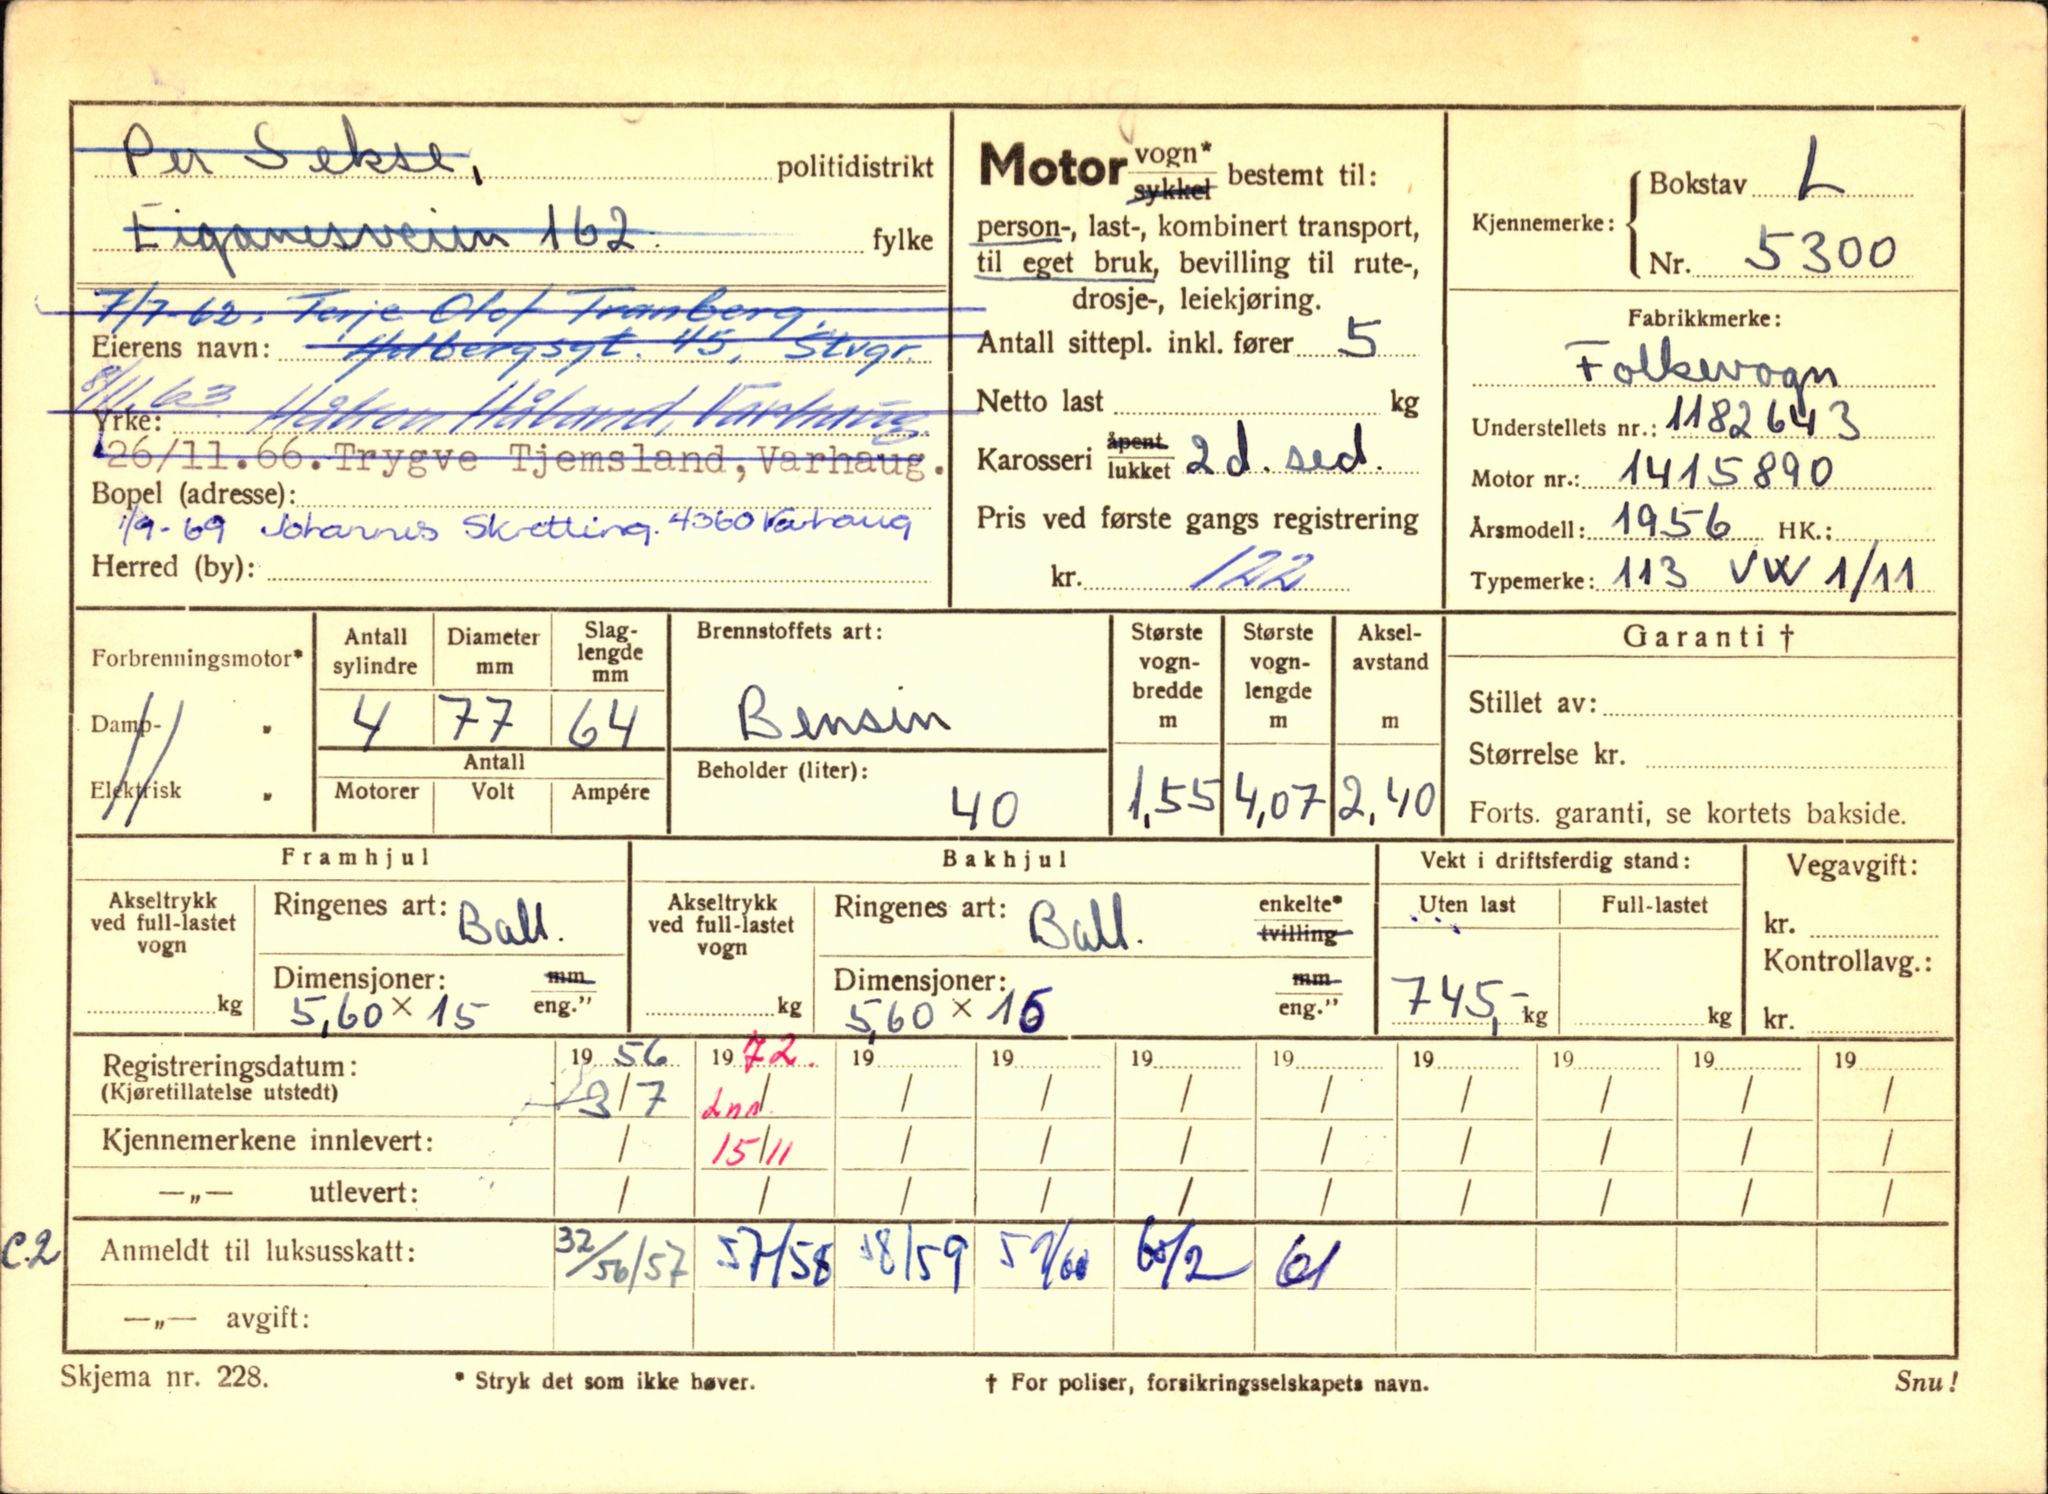 Per Sekse, politidistrikt
Eiganesveien 162. fylke
7/7-62. Terje Olof Tranberg,
Eierens navn: Holbergsgt. 45, Stvgr.
8/11.63. Håkon Håland, Varhaug.
Yrke:
26/11.66. Trygve Tjemsland, Varhaug.
Bopel (adresse):
1/9-69 Johannes Skretting. 4360 Varhaug
Herred (by):
Motor vogn* sykkel bestemt til:
person-, last-, kombinert transport,
til eget bruk, bevilling til rute-,
drosje-, leiekjøring.
Antall sittepl. inkl. fører 5
Netto last kg
Karosseri åpent lukket 2 d. sed.
Pris ved første gangs registrering
kr. 122
Kjennemerke: Bokstav L
Nr. 5300
Fabrikkmerke:
Folkevogn
Understellets nr.: 1182643
Motor nr.: 1415890
Årsmodell: 1956 HK.:
Typemerke: 113 VW 1/11
Forbrenningsmotor*
Damp- "
Elektrisk "
Antall sylindre
Diameter mm
Slag-lengde mm
4 77 64
Antall
Motorer Volt Ampére
Brennstoffets art:
Bensin
Beholder (liter):
40
Største vogn-bredde m
Største vogn-lengde m
Aksel-avstand m
1,55 4,07 2,40
Garanti †
Stillet av:
Størrelse kr.
Forts. garanti, se kortets bakside.
Framhjul
Akseltrykk ved full-lastet vogn
kg
Ringenes art: Ball.
Dimensjoner: mm
5,60 × 15 eng."
Bakhjul
Akseltrykk ved full-lastet vogn
kg
Ringenes art: Ball. enkelte* tvilling
Dimensjoner: mm
5,60 × 15 eng."
Vekt i driftsferdig stand:
Uten last Full-lastet
745,- kg kg
Vegavgift:
kr.
Kontrollavg.:
kr.
Registreringsdatum: 19 56 19 72. 19 19 19 19 19 19 19 19
(Kjøretillatelse utstedt) 3/7 / / / / / / / / /
Kjennemerkene innlevert: / 15/11 / / / / / / / /
—„— utlevert: / / / / / / / / / /
C.2 Anmeldt til luksusskatt: 32/56/57 57/58 58/59 59/60 60/2 61
—„— avgift:
Skjema nr. 228. * Stryk det som ikke høver. † For poliser, forsikringsselskapets navn. Snu!